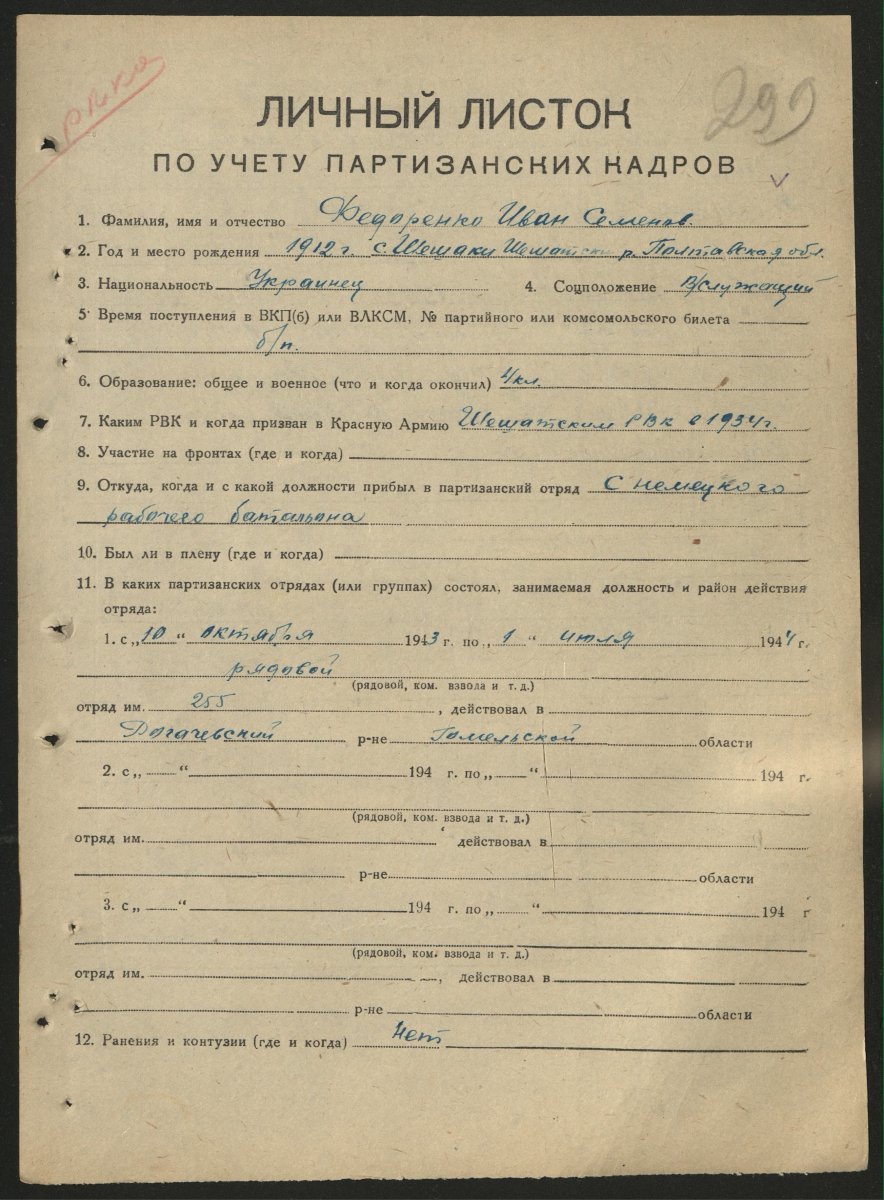 РККА
299
ЛИЧНЫЙ ЛИСТОК
ПО УЧЕТУ ПАРТИЗАНСКИХ КАДРОВ
1. Фамилия, имя и отчество Федоренко Иван Семенов.
2. Год и место рождения 1912 г. с. Шешаки р. Полтавская обл.
3. Национальность Украинец 4. Соцположение в/служащий
5. Время поступления в ВКП(б) или ВЛКСМ, № партийного или комсомольского билета
б/п.
6. Образование: общее и военное (что и когда окончил) 4 кл.
7. Каким РВК и когда призван в Красную Армию Шешатским РВК в 1934 г.
8. Участие на фронтах (где и когда)
9. Откуда, когда и с какой должности прибыл в партизанский отряд С немецкого
рабочего батальона
10. Был ли в плену (где и когда)
11. В каких партизанских отрядах (или группах) состоял, занимаемая должность и район действия
отряда:
1. с „10 “ октября 1943 г. по „ 1 “ июля 1944 г.
рядовой
(рядовой, ком. взвода и т. д.)
отряд им. 255 , действовал в
Рогачевский р-не Гомельской области
2. с „ “ 194 г. по „ “ 194 г.
(рядовой, ком. взвода и т. д.)
отряд им. действовал в
р-не области
3. с „ “ 194 г. по „ “ 194 г
(рядовой, ком. взвода и т. д.)
отряд им. , действовал в
р-не области
12. Ранения и контузии (где и когда) Нет